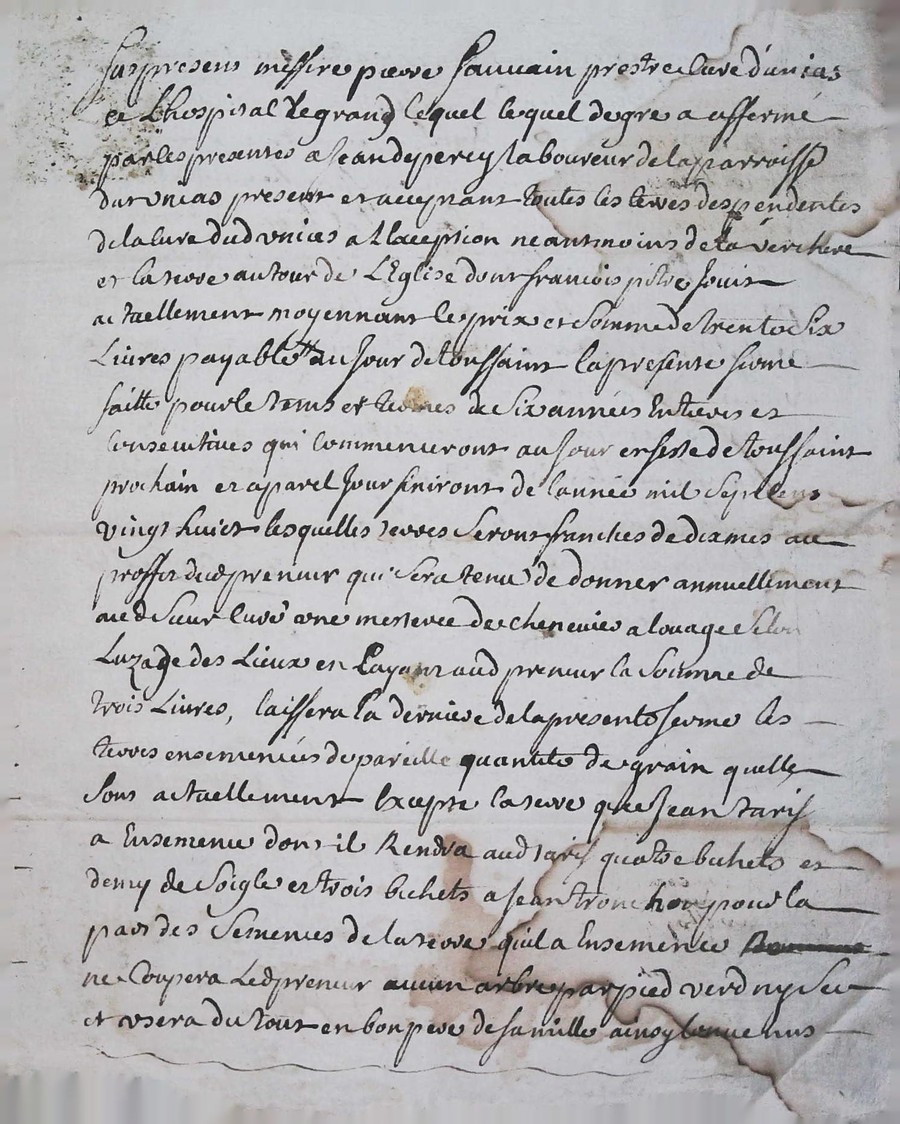 fut present messire pierre Jauvain prestre cure d'unias
et Lhospital le grand lequel lequel de gre a affermé
par les presentes a Jean depercy laboureur de la parroisse
dud unias present et acceptant toutes les terres despendentes
de la cure dud unias a Llaception neantmoins de la verchere
et la terre autour de L'Eglise dont francois pitre Jouit
actuellement moyennant le prix et Somme de trente Six
Livres payable au Jour de toussaint la presente ferme
faitte pour le tems et termes de Six années Entieres et
Consecutives qui Commenceront au Jour et feste de toussaint
prochain et a pareil Jour finiront de l'année mil Sept Cens
vingt huict lesquelles terres Seront franches de dixmes au
proffit dud preneur qui Sera tenu de donner annuellement
aud Sieur Curé une mesterée de cheneviere a louage Selon
Luzage des Lieux en Payant aud preneur la Somme de
trois Livres, laissera la derniere de la presente ferme les
terres ensemencées de pareille quantité de grain quelle
Sont actuellement Excepté la terre que Jean tarif
a Ensemencé dont il Rendra aud tarif quatre bichets et
demy de Soigle et trois bichets a Jean tronchon pour la
part des Semences de la terre qu'il a Ensemencée
ne Coupera Led preneur aucun arbre par pied verd ny Sec
et usera du tout en bon pere de famille ainsy Convenus